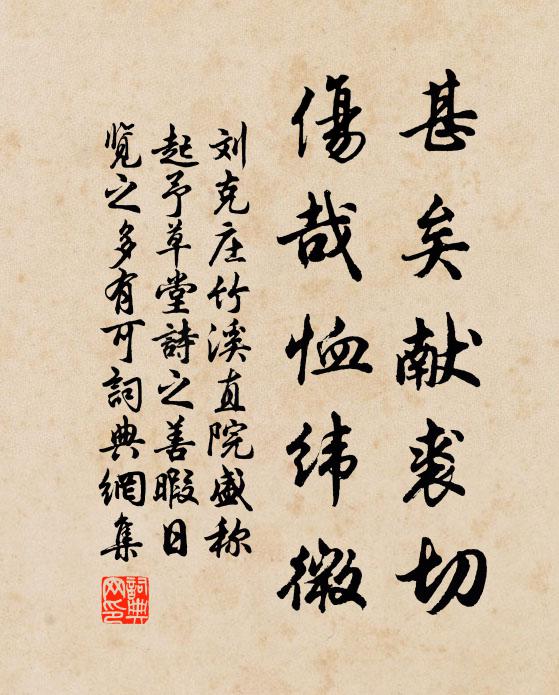 甚矣献裘切
傷哉恤纬微
刘克庄竹溪直院盛称
起予草堂詩之善暇日
览之多有可詞典網集
詞典网印